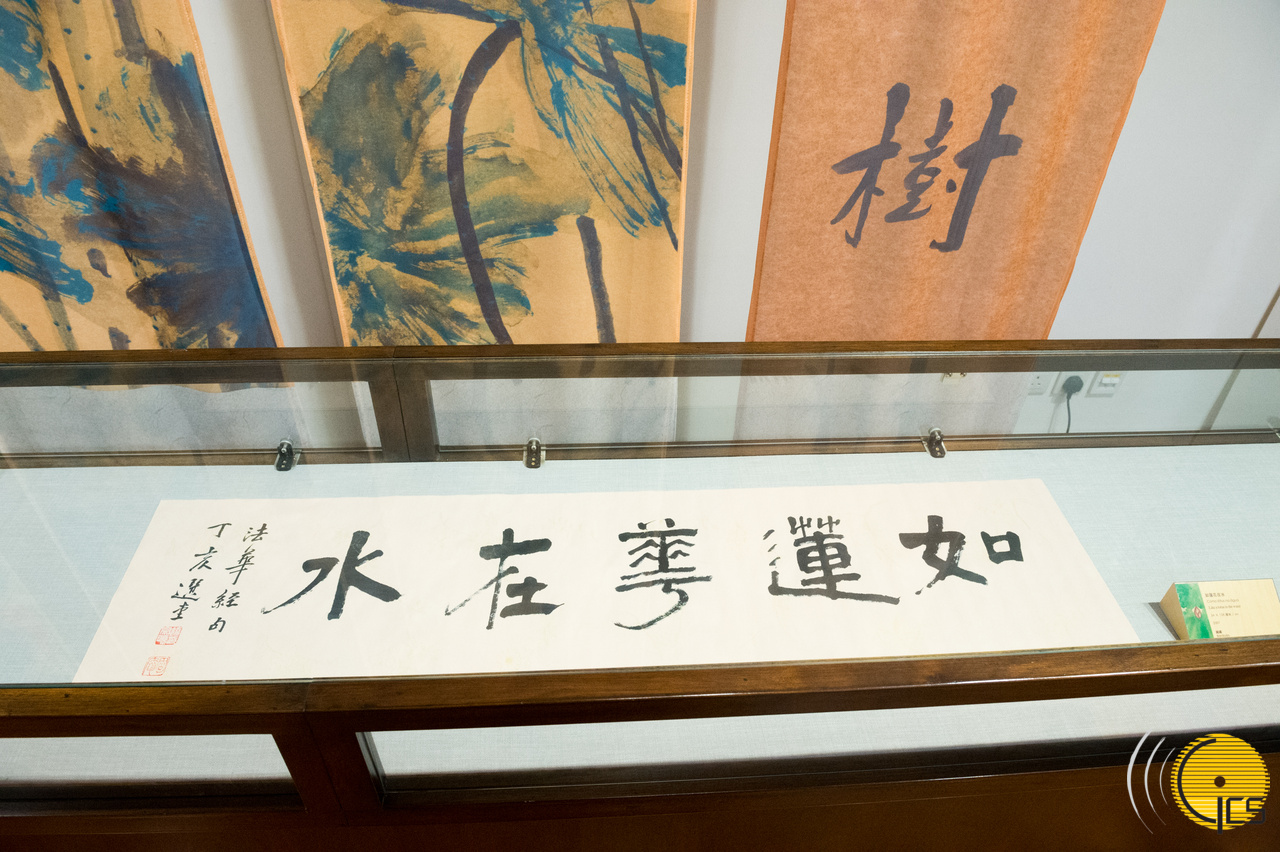 樹
如蓮華在水
法華經句
丁亥選堂
CJCS